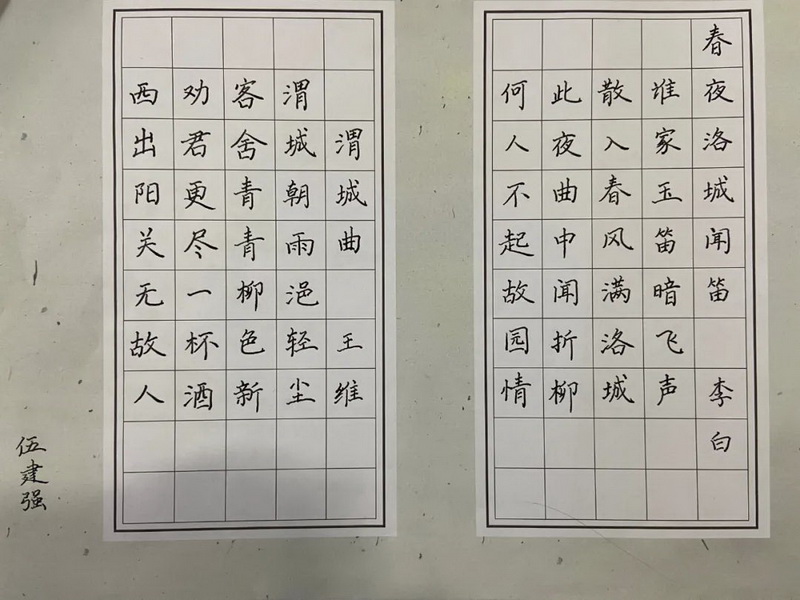 春夜洛城闻笛 李白
谁家玉笛暗飞声
散入春风满洛城
此夜曲中闻折柳
何人不起故园情
渭城曲 王维
渭城朝雨浥轻尘
客舍青青柳色新
劝君更尽一杯酒
西出阳关无故人
伍建强